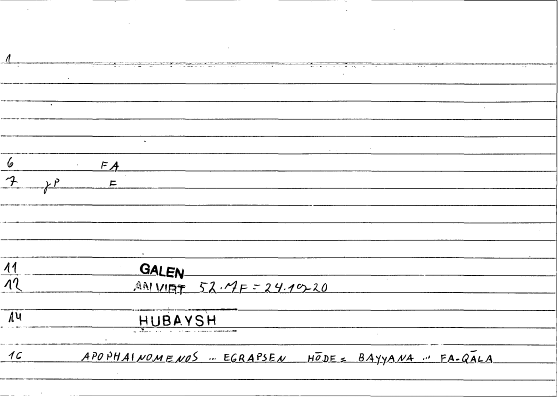 1
6 FA
7 γP F
11 GALEN
12 AN VIRT 52.MF = 24.19-20
14 HUBAYSH
16 APOPHAINOMENOS ... EGRAPSEN HŌDE = BAYYANA ... FA-QĀLA